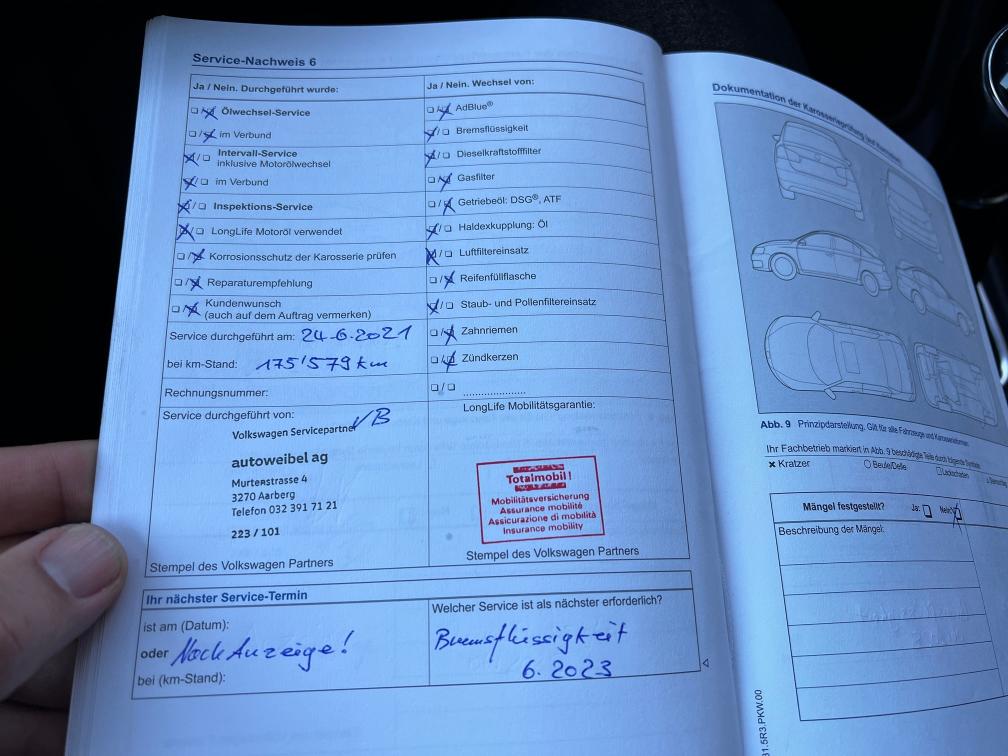 Service-Nachweis 6
Ja / Nein. Durchgeführt wurde:
Ölwechsel-Service
im Verbund
Intervall-Service
inklusive Motorölwechsel
im Verbund
Inspektions-Service
LongLife Motoröl verwendet
Korrosionsschutz der Karosserie prüfen
Reparaturempfehlung
Kundenwunsch
(auch auf dem Auftrag vermerken)
Service durchgeführt am: 24.6.2021
bei km-Stand: 175'579 km
Rechnungsnummer:
Service durchgeführt von:
Volkswagen Servicepartner
VB
autoweibel ag
Murtenstrasse 4
3270 Aarberg
Telefon 032 391 71 21
223 / 101
Stempel des Volkswagen Partners
Ja / Nein. Wechsel von:
AdBlue®
Bremsflüssigkeit
Dieselkraftstofffilter
Gasfilter
Getriebeöl: DSG®, ATF
Haldexkupplung: Öl
Luftfiltereinsatz
Reifenfüllflasche
Staub- und Pollenfiltereinsatz
Zahnriemen
Zündkerzen
LongLife Mobilitätsgarantie:
Totalmobil!
Mobilitätsversicherung
Assurance mobilité
Assicurazione di mobilità
Insurance mobility
Stempel des Volkswagen Partners
Ihr nächster Service-Termin
ist am (Datum):
oder Nach Anzeige!
bei (km-Stand):
Welcher Service ist als nächster erforderlich?
Bremsflüssigkeit
6. 2023
Dokumentation der Karosserieprüfung
Abb. 9 Prinzipdarstellung. Gilt für alle Fahrzeuge und Karosserieformen.
Ihr Fachbetrieb markiert in Abb. 9 beschädigte Teile durch folgende Symbole:
Kratzer
Beule/Delle
Lackschaden
Mängel festgestellt? Ja: Nein:
Beschreibung der Mängel:
1.5R3.PKW.00